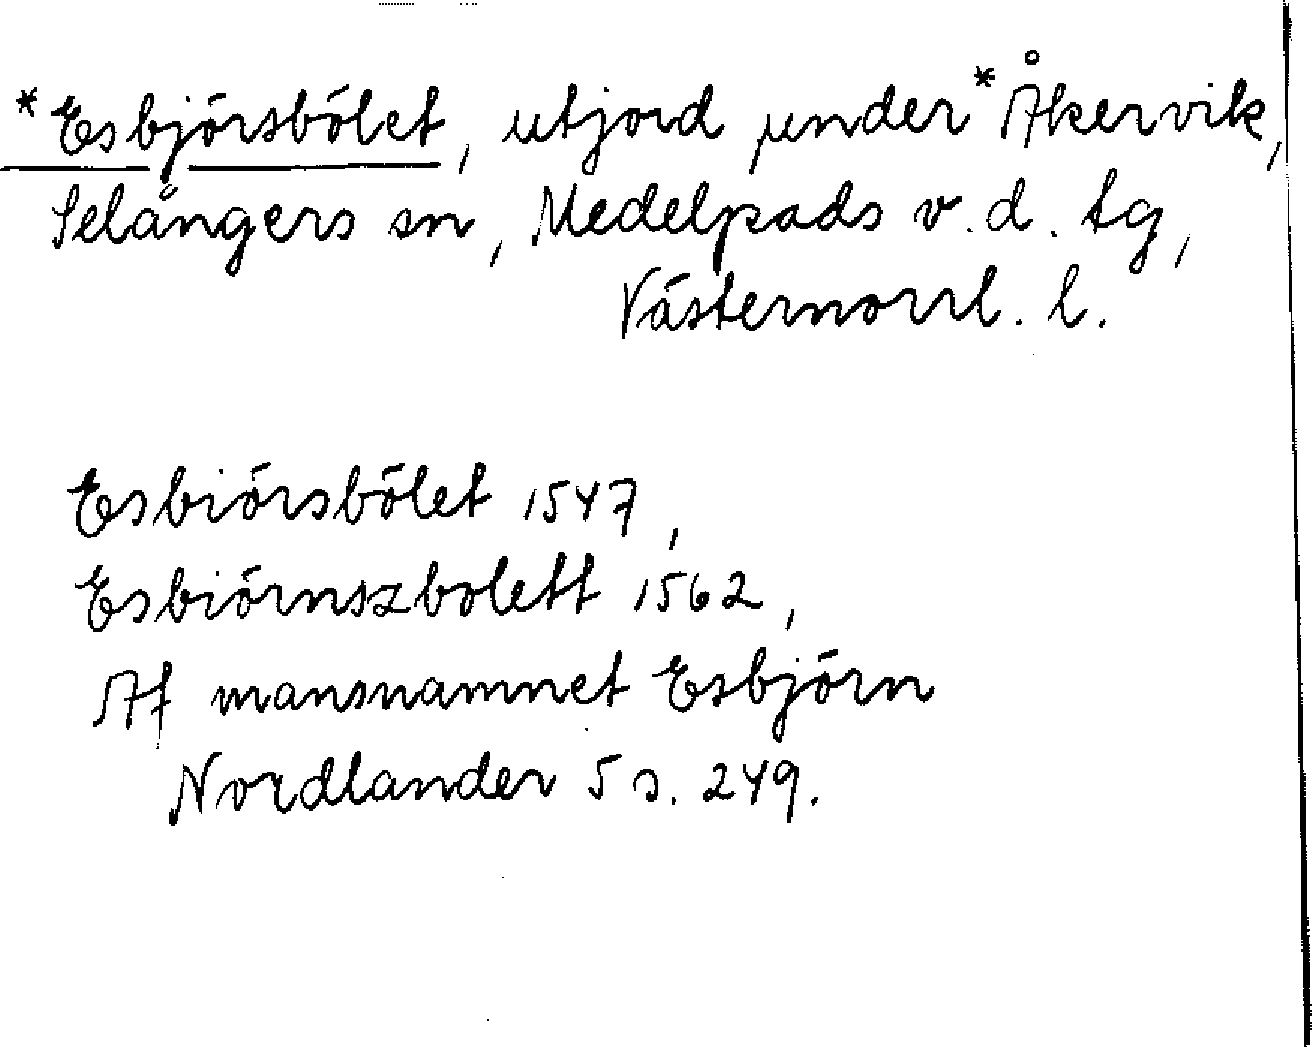 *Esbjörsbölet, utjord under *Åkervik,
Selångers sn, Medelpads v.d. tg,
Västernorrl. l.
Esbiörsbölet 1547,
Esbiörnszbolett 1562,
Af mansnamnet Esbjörn
Nordlander 5 s. 249.